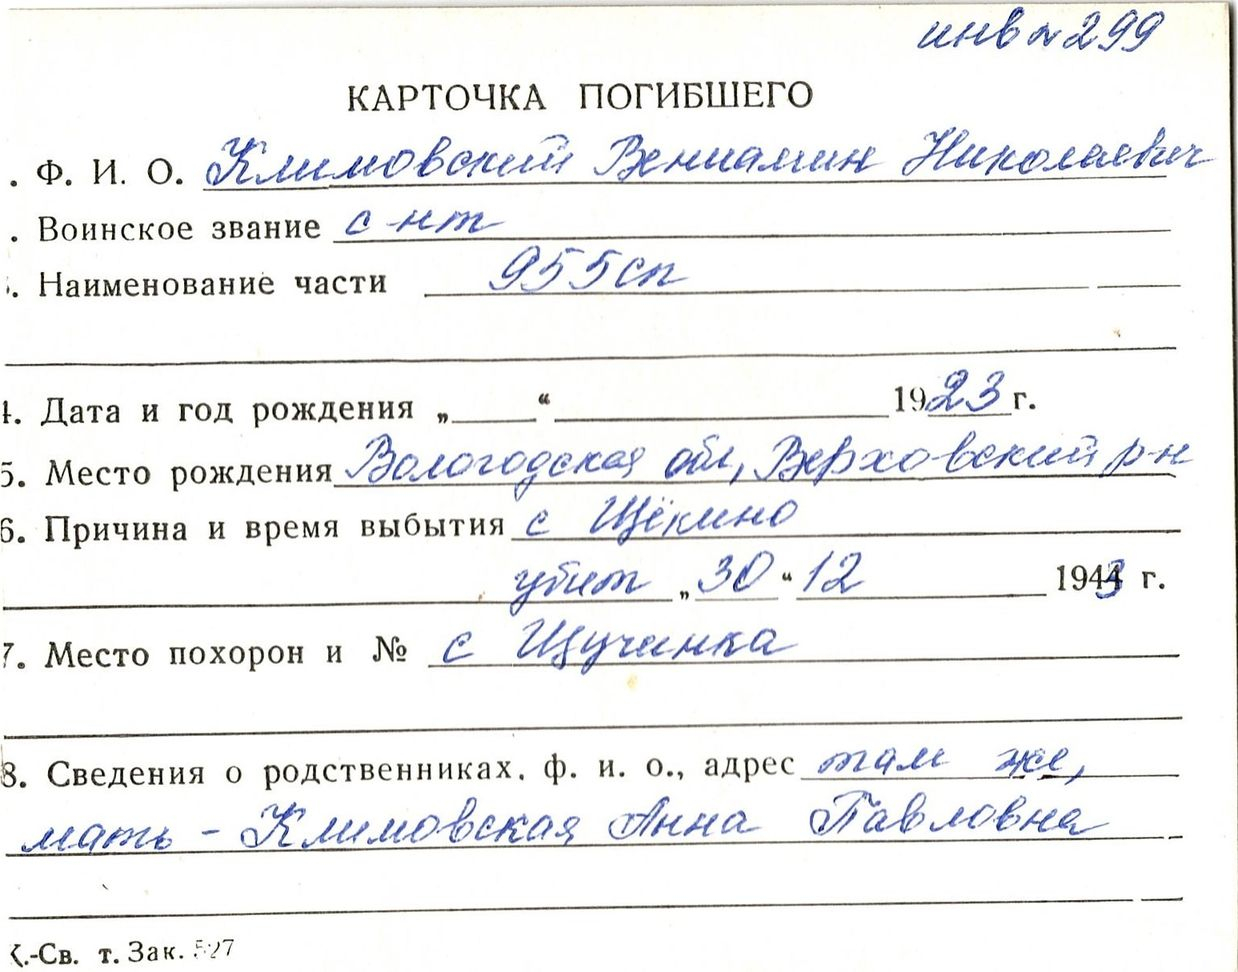 инв № 299
КАРТОЧКА ПОГИБШЕГО
. Ф. И. О. Климовский Вениамин Николаевич
. Воинское звание с-нт
. Наименование части 955сп
4. Дата и год рождения „ “ 1923 г.
5. Место рождения Вологодская обл, Верховский р-н
6. Причина и время выбытия с Щёкино
убит „30“ 12 1943 г.
7. Место похорон и № с Щучинка
8. Сведения о родственниках. ф. и. о., адрес там же,
мать - Климовская Анна Павловна
К.-Св. т. Зак. 527